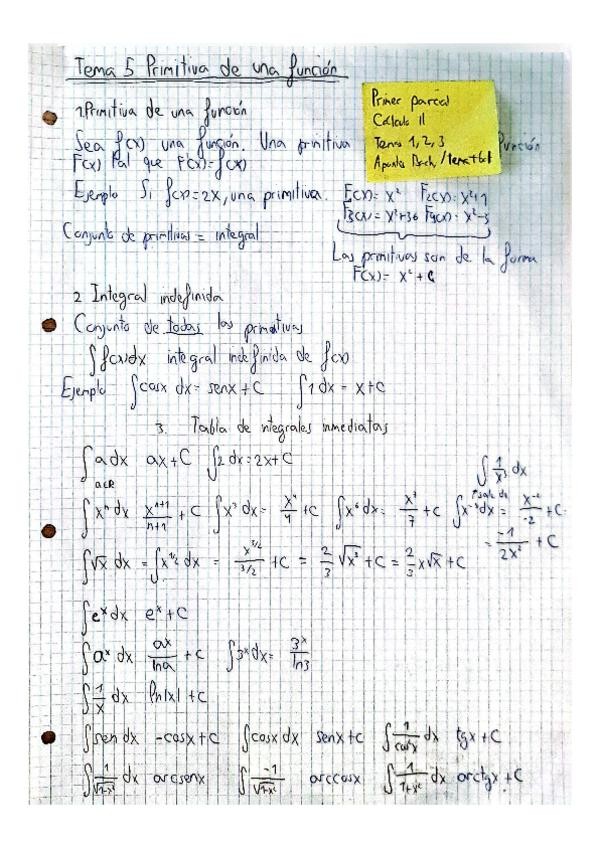 Tema 5 Primitiva de una función
1. Primitiva de una función
Primer parcial
Cálculo II
Tema 1, 2, 3
Apuntes Bach./
Sea f(x) una función. Una primitiva función
F(x) tal que F'(x)=f(x)
Ejemplo Si f(x)=2x, una primitiva. F(x)= x² F₂(x)= x²+1
F₃(x)= x²+36 F₄(x)= x²-3
Conjunto de primitivas = integral
Las primitivas son de la forma
F(x)= x² + C
2 Integral indefinida
Conjunto de todas las primitivas
∫f(x)dx integral indefinida de f(x)
Ejemplo ∫cosx dx = senx + C ∫1dx = x+C
3. Tabla de integrales inmediatas
∫a dx ax+C ∫2dx = 2x+C ∫1/x³ dx
a∈R
∫xⁿdx xⁿ⁺¹/n+1 + C ∫x³dx = x⁴/4 + C ∫x⁶dx = x⁷/7 + C ∫x⁻³dx = x⁻²/-2 + C
= -1/2x² + C
∫√x dx = ∫x^1/2 dx = x^3/2 / 3/2 + C = 2/3 √x³ + C = 2/3 x√x + C
∫eˣdx eˣ+C
∫aˣ dx aˣ/lna + C ∫3ˣdx = 3ˣ/ln3
∫1/x dx ln|x| + C
∫sen dx -cosx+C ∫cosx dx senx+C ∫1/cos²x dx tgx + C
∫1/√1-x² dx arcsenx ∫-1/√1-x² arccosx ∫1/1+x² dx arctgx + C